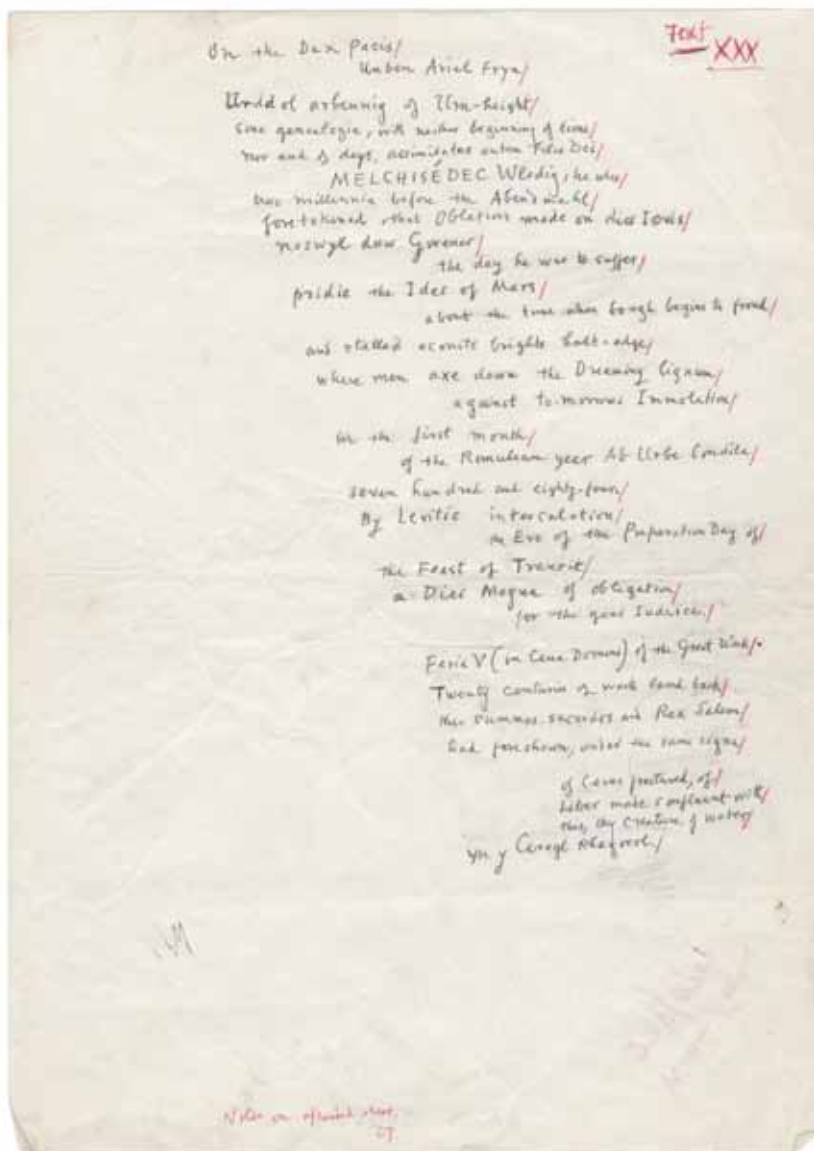 Text
XXX
On the Dux Pacis/
Unben Arial Fryn/
Urddol arbennig of Urn-height/
sine genealogia, with neither beginning of time/
nor end of days, assimilatus autem Filio Dei/
MELCHISÉDEC Wledig, he who
two millennia before the Abendmahl/
foretokened that Oblation made on dies Iovis/
noswyl duw Gwener/
the day he was to suffer/
pridie the Ides of Mars/
about the time when bough begins to frond/
and stelled aconite brights holt-edge/
where men axe down the Dreaming lignum/
against to-morrows Immolation/
in the first month/
of the Romulean year Ab Urbe Condita/
seven hundred and eighty-four/
By Levitic intercalation/
on Eve of the Preparation Day of/
the Feast of Transit/
a Dies Magna of obligation/
for the gens Iudaica./
Feria V (in Cena Domini) of the Great Week/.
Twenty centuries of weeks back/
this summus sacerdos and Rex Salem/
had foreshown, under the same signa/
of Ceres fractured, of/
Liber made confluent with/
this, thy creature of water/
yn y Cangl
Notes on attached sheet.